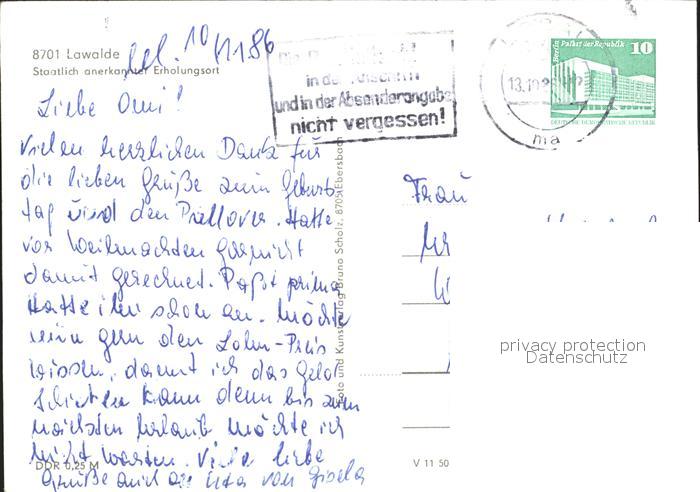 8701 Lawalde
Staatlich anerkannter Erholungsort
10/11.86
in der Anschrift
und in der Absenderangabe
nicht vergessen!
13.10
Berlin Palast der Republik 10
DEUTSCHE DEMOKRATISCHE REPUBLIK
Liebe Omi!
Vielen herzlichen Dank für
die lieben Grüße zum Geburts-
tag und den Pullover. Hatte
vor Weihnachten garnicht
damit gerechnet. Paßt prima
Hatte ihn schon an. Möchte
nun gern den Lohn-Preis
wissen, damit ich das Geld
schicken kann denn bis zum
nächsten Urlaub möchte ich
nicht warten. Viele liebe
Grüße auch an von Gisela
Frau
Foto und Kunstverlag Bruno Scholz, 8705 Ebersbach
DDR 0,25 M
V 11 50
privacy protection
Datenschutz